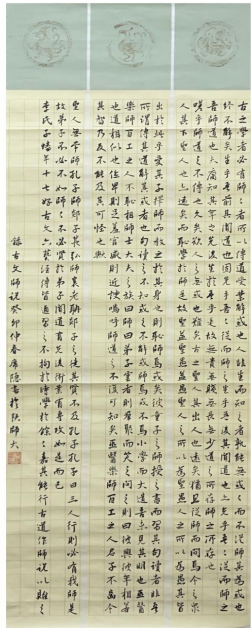 古之學者必有師師者所以傳道受業解惑也人非生而知之者孰能無惑惑而不從師其為惑也
終不解矣生乎吾前其聞道也固先乎吾吾從而師之生乎吾後其聞道也亦先乎吾吾從而師之
吾師道也夫庸知其年之先後生於吾乎是故無貴無賤無長無少道之所存師之所存也
嗟乎師道之不傳也久矣欲人之無惑也難矣古之聖人其出人也遠矣猶且從師而問焉今之眾
人其下聖人也亦遠矣而恥學於師是故聖益聖愚益愚聖人之所以為聖愚人之所以為愚其皆
出於此乎愛其子擇師而教之於其身也則恥師焉惑矣彼童子之師授之書而習其句讀者非吾
所謂傳其道解其惑者也句讀之不知惑之不解或師焉或不焉小學而大遺吾未見其明也巫醫
樂師百工之人不恥相師士大夫之族曰師曰弟子云者則群聚而笑之問之則曰彼與彼年相若
也道相似也位卑則足羞官盛則近諛嗚呼師道之不復可知矣巫醫樂師百工之人君子不齒今
其智乃反不能及其可怪也歟
聖人無常師孔子師郯子萇弘師襄老聃郯子之徒其賢不及孔子孔子曰三人行則必有我師是
故弟子不必不如師師不必賢於弟子聞道有先後術業有專攻如是而已
李氏子蟠年十七好古文六藝經傳皆通習之不拘於時學於余余嘉其能行古道作師說以貽之
錄古文師說癸卯仲春於陝師大